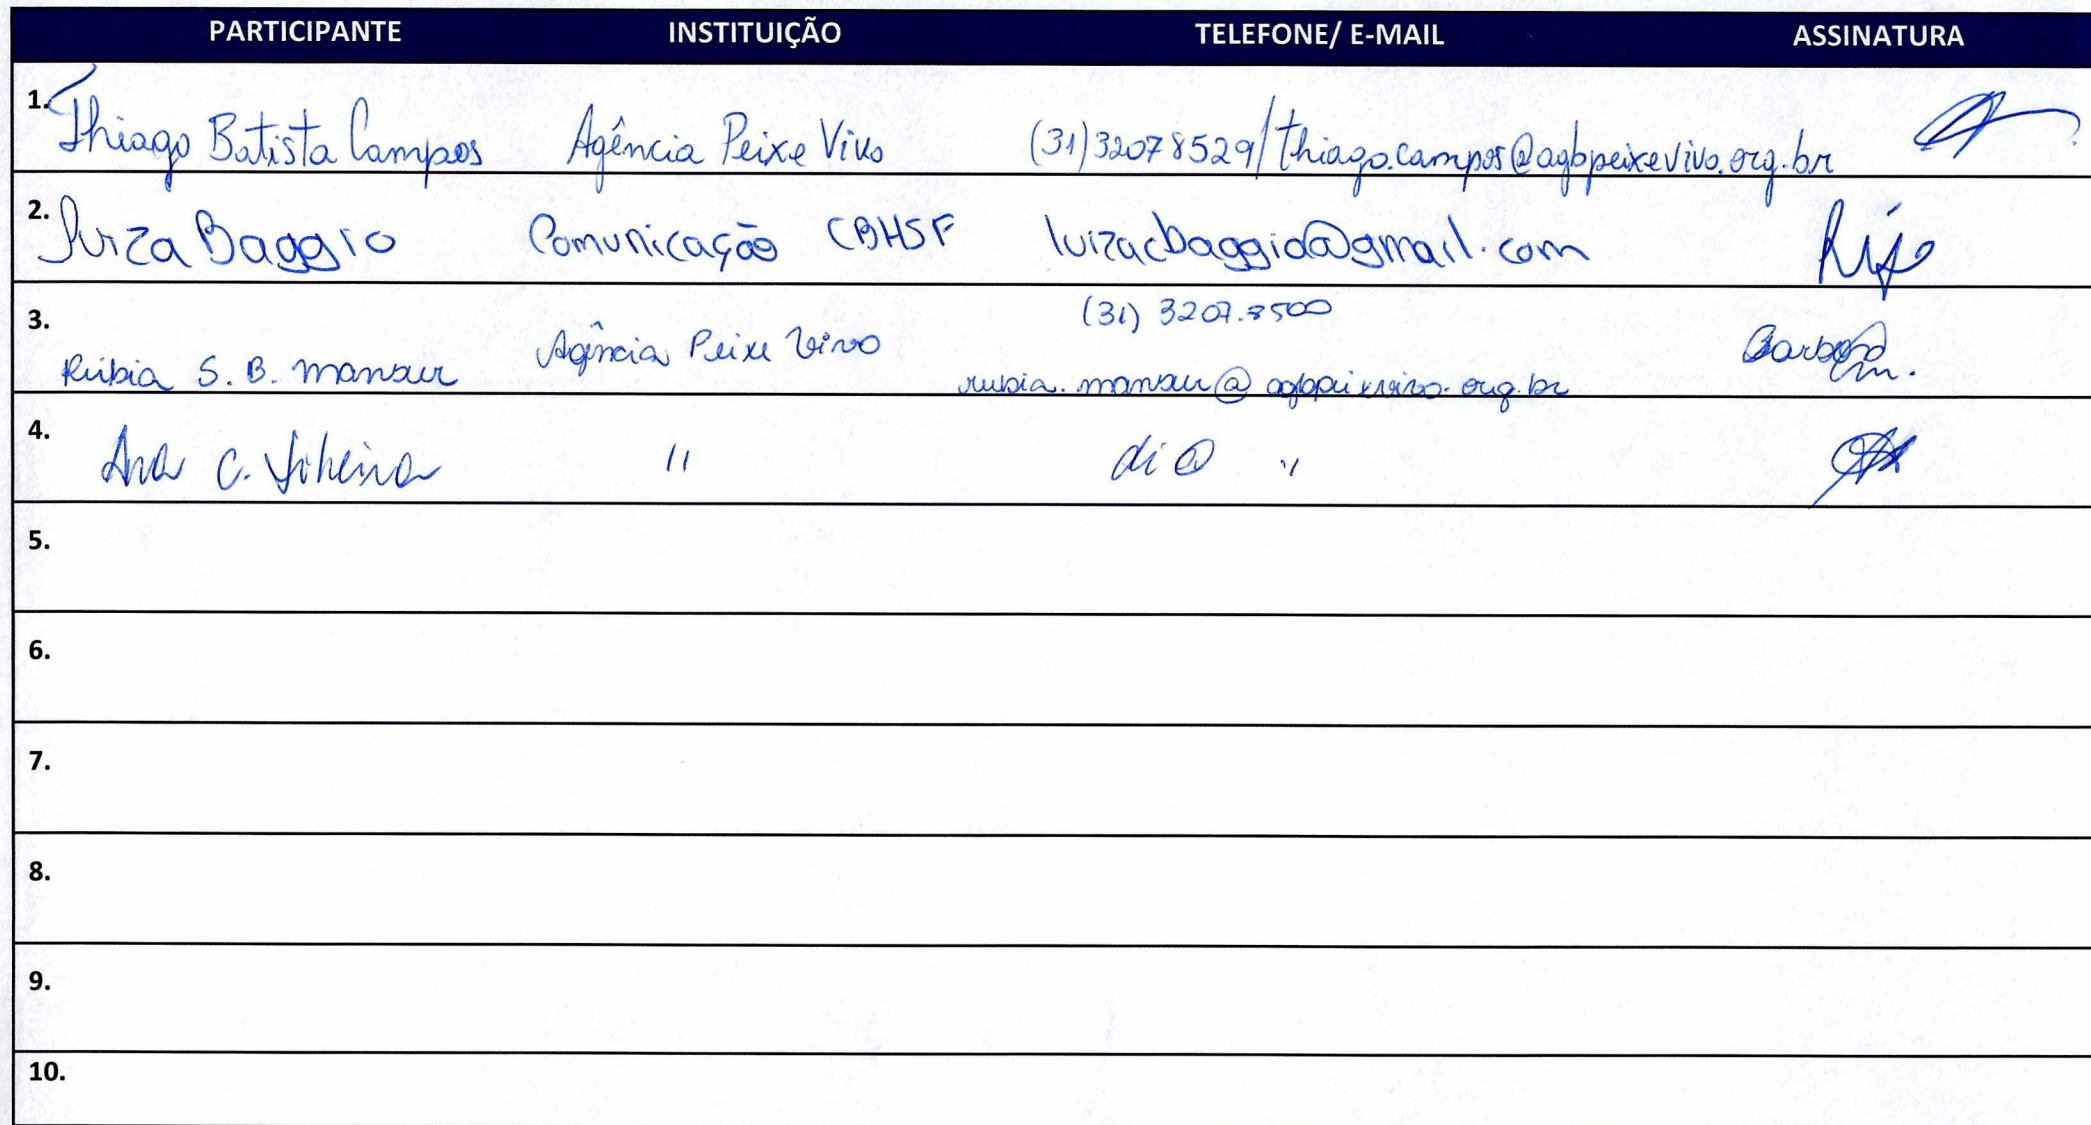 PARTICIPANTE INSTITUIÇÃO TELEFONE/ E-MAIL ASSINATURA
1. Thiago Batista Campos Agência Peixe Vivo (31)32078529/thiago.campos@agbpeixevivo.org.br
2. Luiza Baggio Comunicação CBHSF luizacbaggio@gmail.com
3. Rúbia S. B. Mansur Agência Peixe Vivo (31) 3207.8500
rubia.mansur@agbpeixevivo.org.br Barbosa
4. Ana C. " di@ "
5.
6.
7.
8.
9.
10.